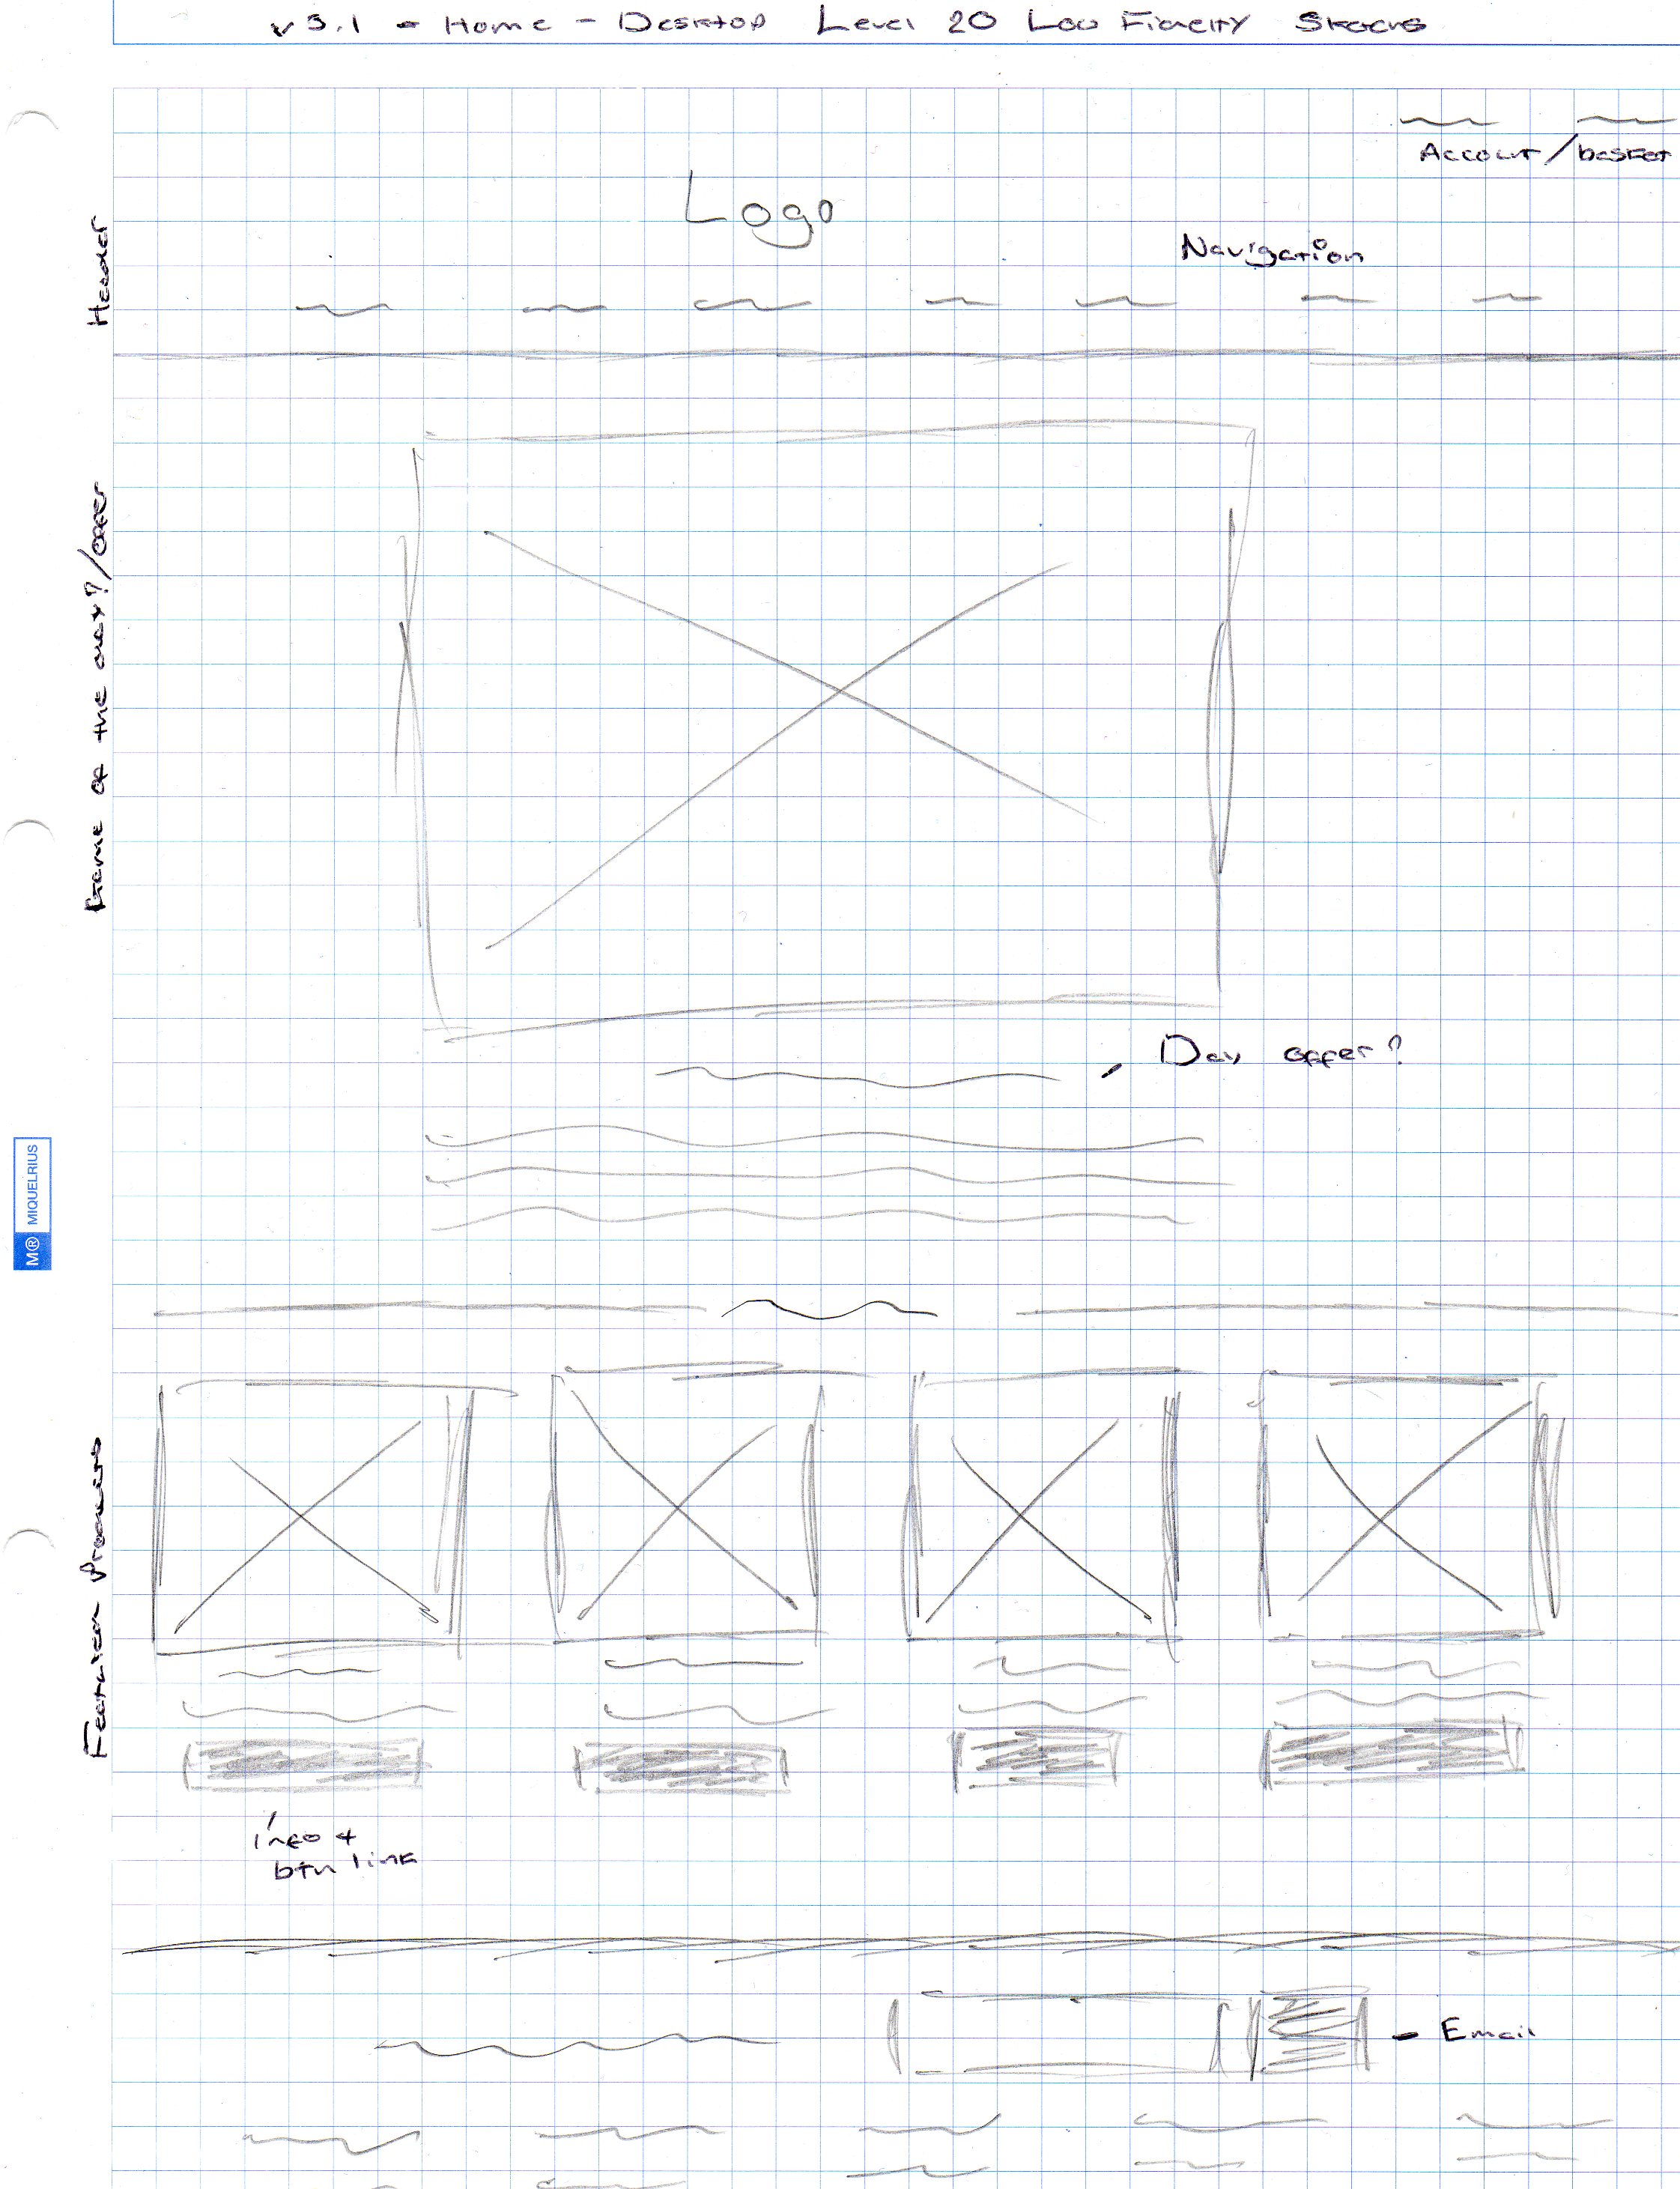 v3.1 - Home - Desktop Level 20 Low Fidelity Sketches
Account/basket
Logo
Navigation
Header
Game of the day?/offer
Day offer?
M® MIQUELRIUS
Featured Products
info +
btn link
- Email